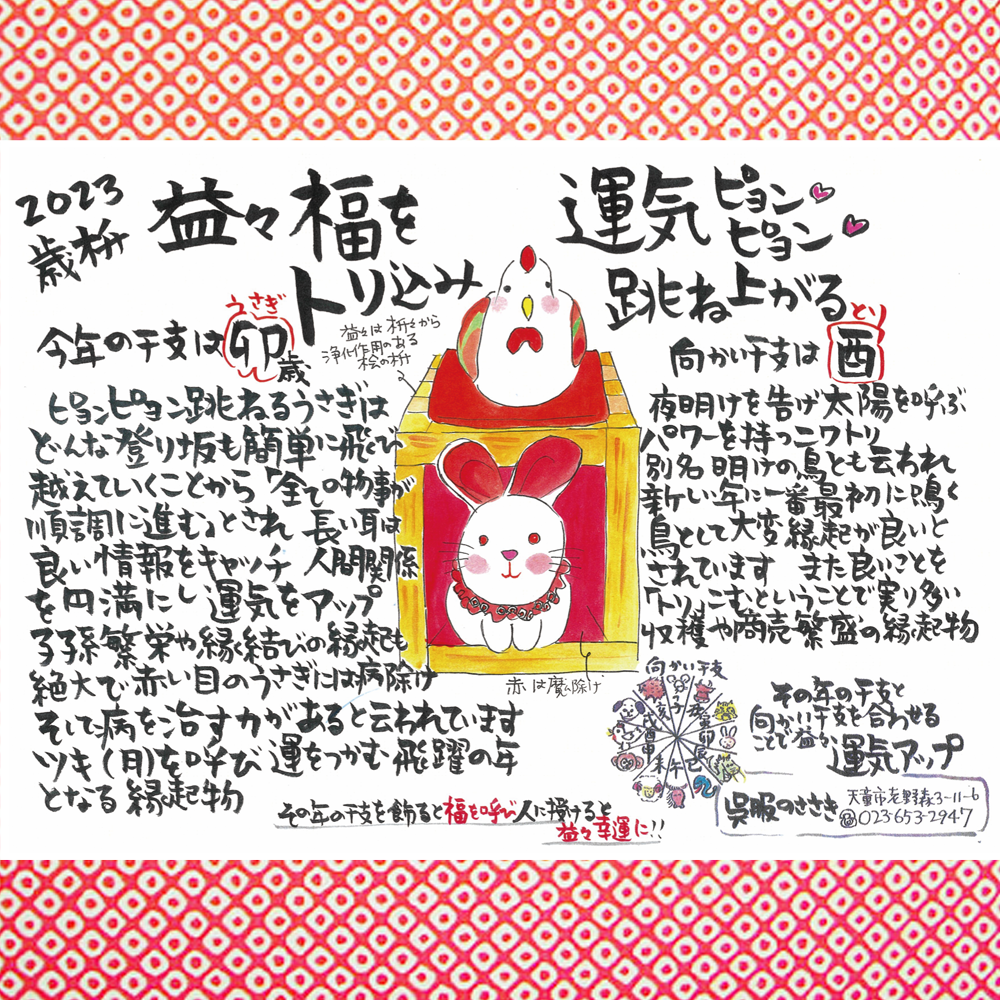 2023
歳枡
益々福を
トリ込み
運気ピョン
ピョン
跳ね上がる
今年の干支は卯歳
うさぎ
益々は枡々から
浄化作用のある
桧の枡
ピョンピョン跳ねるうさぎは
どんな登り坂も簡単に飛び
越えていくことから「全ての物事が
順調に進む」とされ 長い耳は
良い情報をキャッチ 人間関係
を円満にし 運気をアップ
子孫繁栄や縁結びの縁起も
絶大で赤い目のうさぎには病除け
そして病を治す力があると云われています
ツキ(月)を呼び 運をつかむ飛躍の年
となる縁起物
向かい干支は酉
とり
夜明けを告げ太陽を呼ぶ
パワーを持つニワトリ
別名 明けの鳥とも云われ
新しい年に一番最初に鳴く
鳥として大変縁起が良いと
されています また良いことを
「トリ」こむということで実り多い
収穫や商売繁盛の縁起物
赤は魔除け
向かい干支
子
丑
寅
卯
辰
巳
午
未
申
酉
戌
亥
その年の干支と
向かい干支を合わせる
ことで益々
運気アップ
その年の干支を飾ると福を呼び人に授けると
益々幸運に!!
呉服のささき
天童市老野森3-11-6
☎023-653-2947